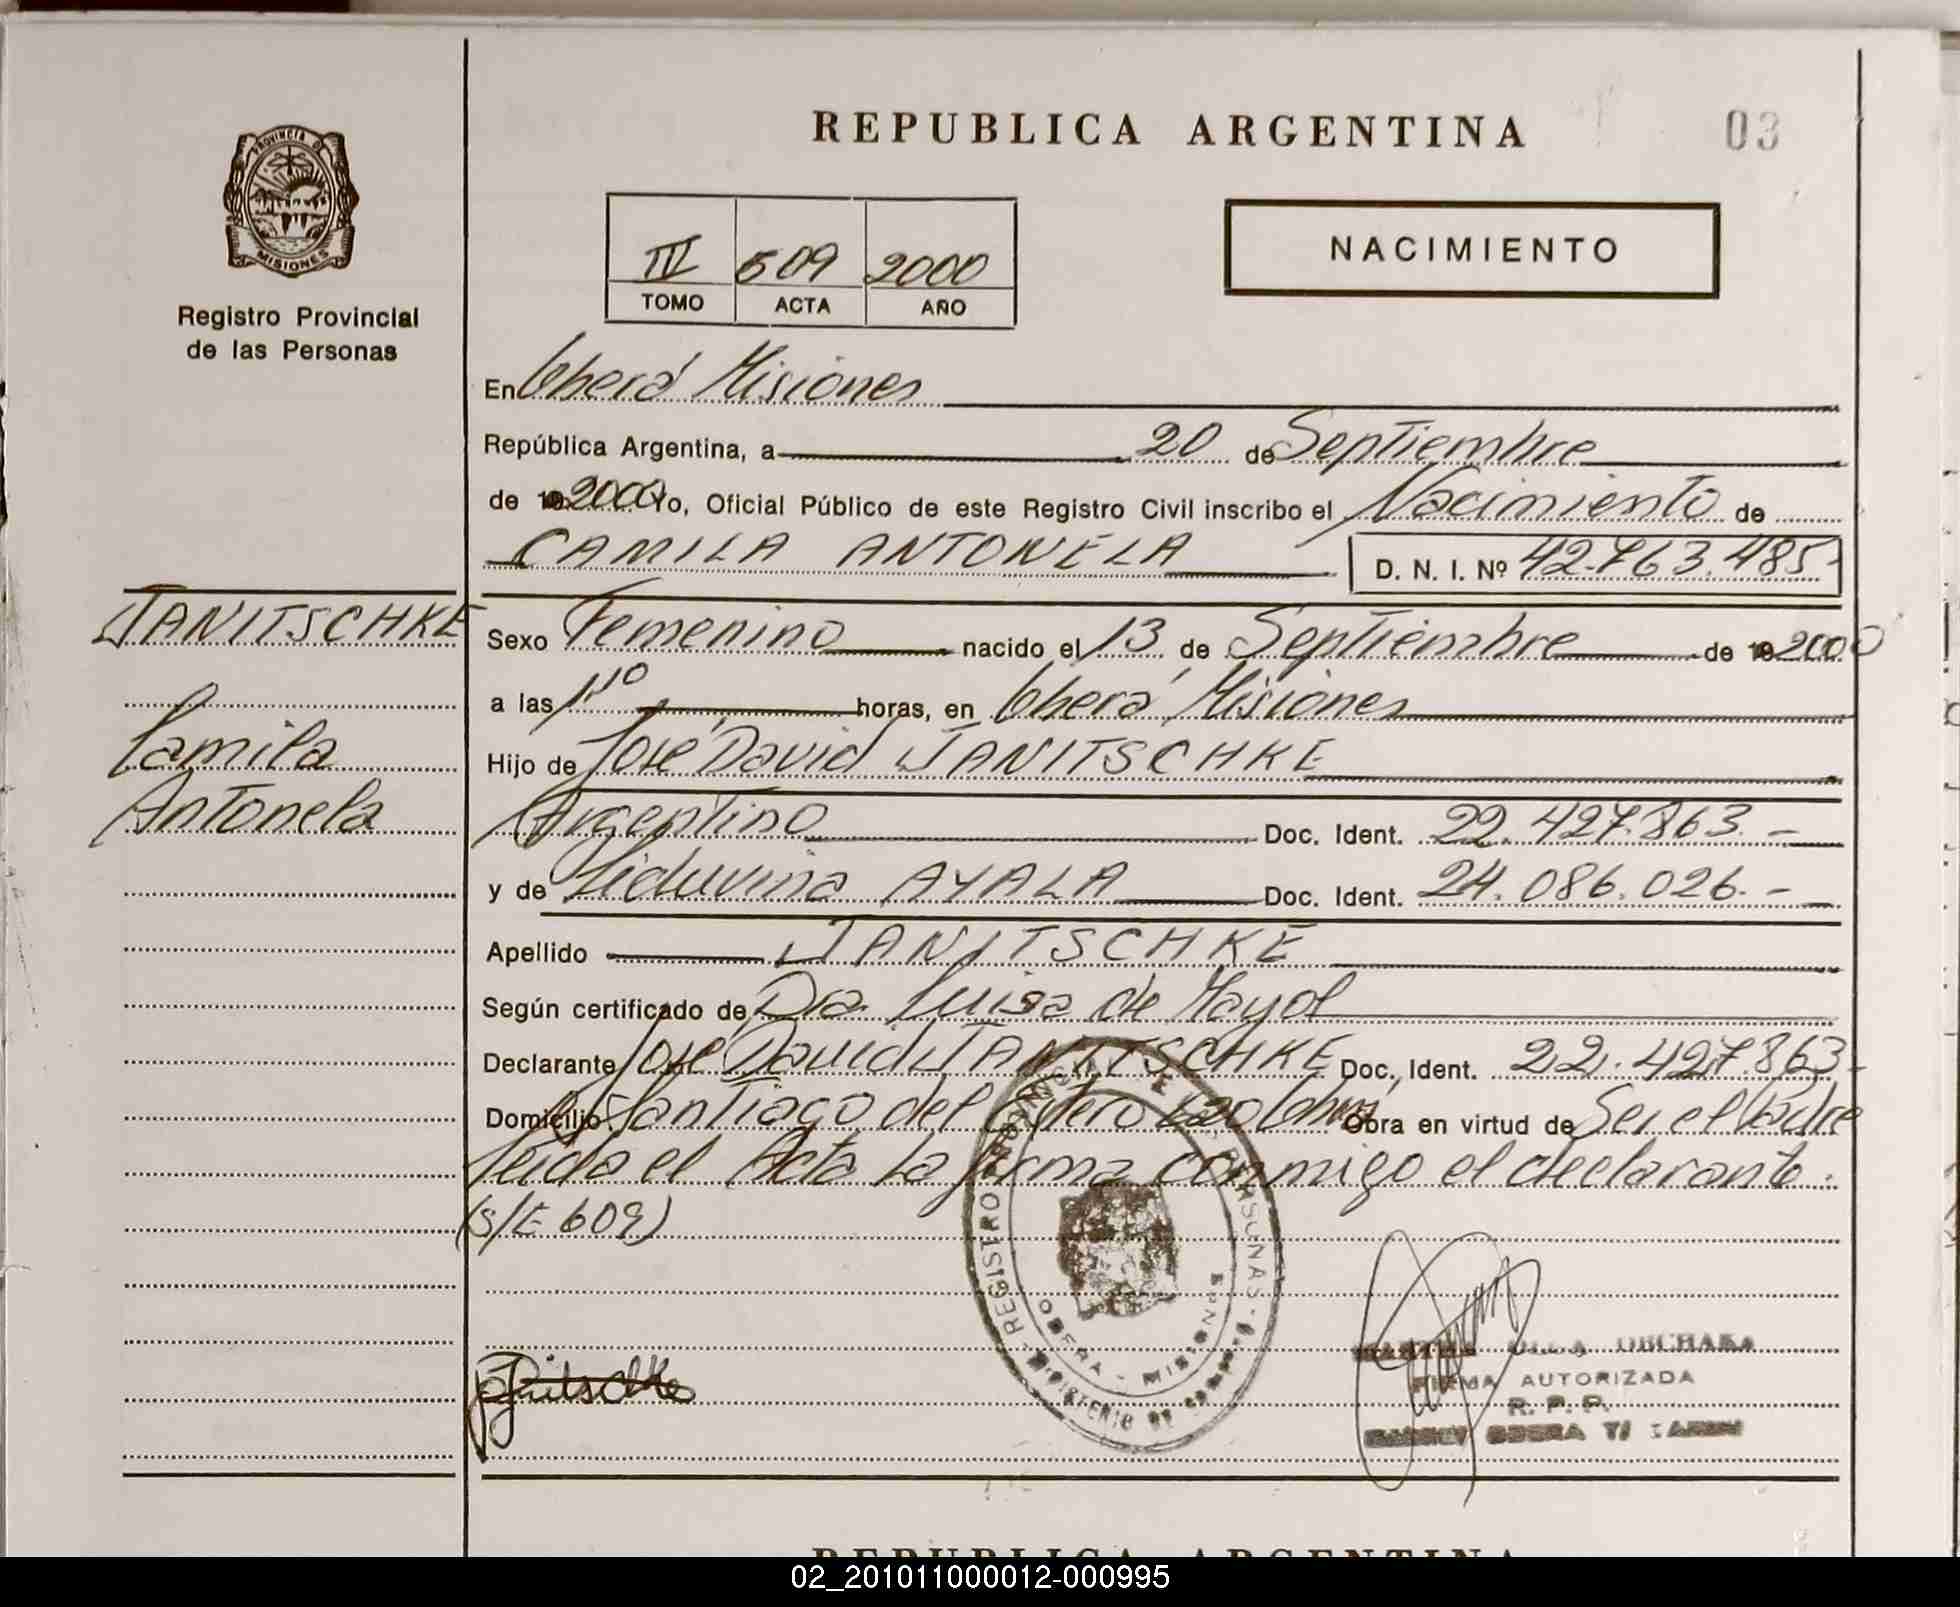 REPUBLICA ARGENTINA
03
PROVINCIA DE
MISIONES
Registro Provincial
de las Personas
III 609 2000
TOMO ACTA AÑO
NACIMIENTO
En Oberá Misiones
República Argentina, a 20 de Septiembre
de 19 2000 Yo, Oficial Público de este Registro Civil inscribo el Nacimiento de
CAMILA ANTONELA D. N. I. Nº 42.763.485-
JANITSCHKE
Camila
Antonela
Sexo Femenino nacido el 13 de Septiembre de 19 2000
a las horas, en Oberá Misiones
Hijo de José David JANITSCHKE
Argentino Doc. Ident. 22.427.863.-
y de Liduvina AYALA Doc. Ident. 24.086.026.-
Apellido JANITSCHKE
Según certificado de Dra Luisa de Mayol
Declarante José David JANITSCHKE Doc. Ident. 22.427.863-
Domicilio Santiago del Estero Obra en virtud de Ser el Padre
Leida el Acta La firma conmigo el declarante.
(S/E 609)
REGISTRO PROVINCIAL DE PERSONAS
OBERA - MISIONES
MINISTERIO DE
OLGA
FIRMA AUTORIZADA
R. P. P.
OBERA
REPUBLICA ARGENTINA
02_201011000012-000995